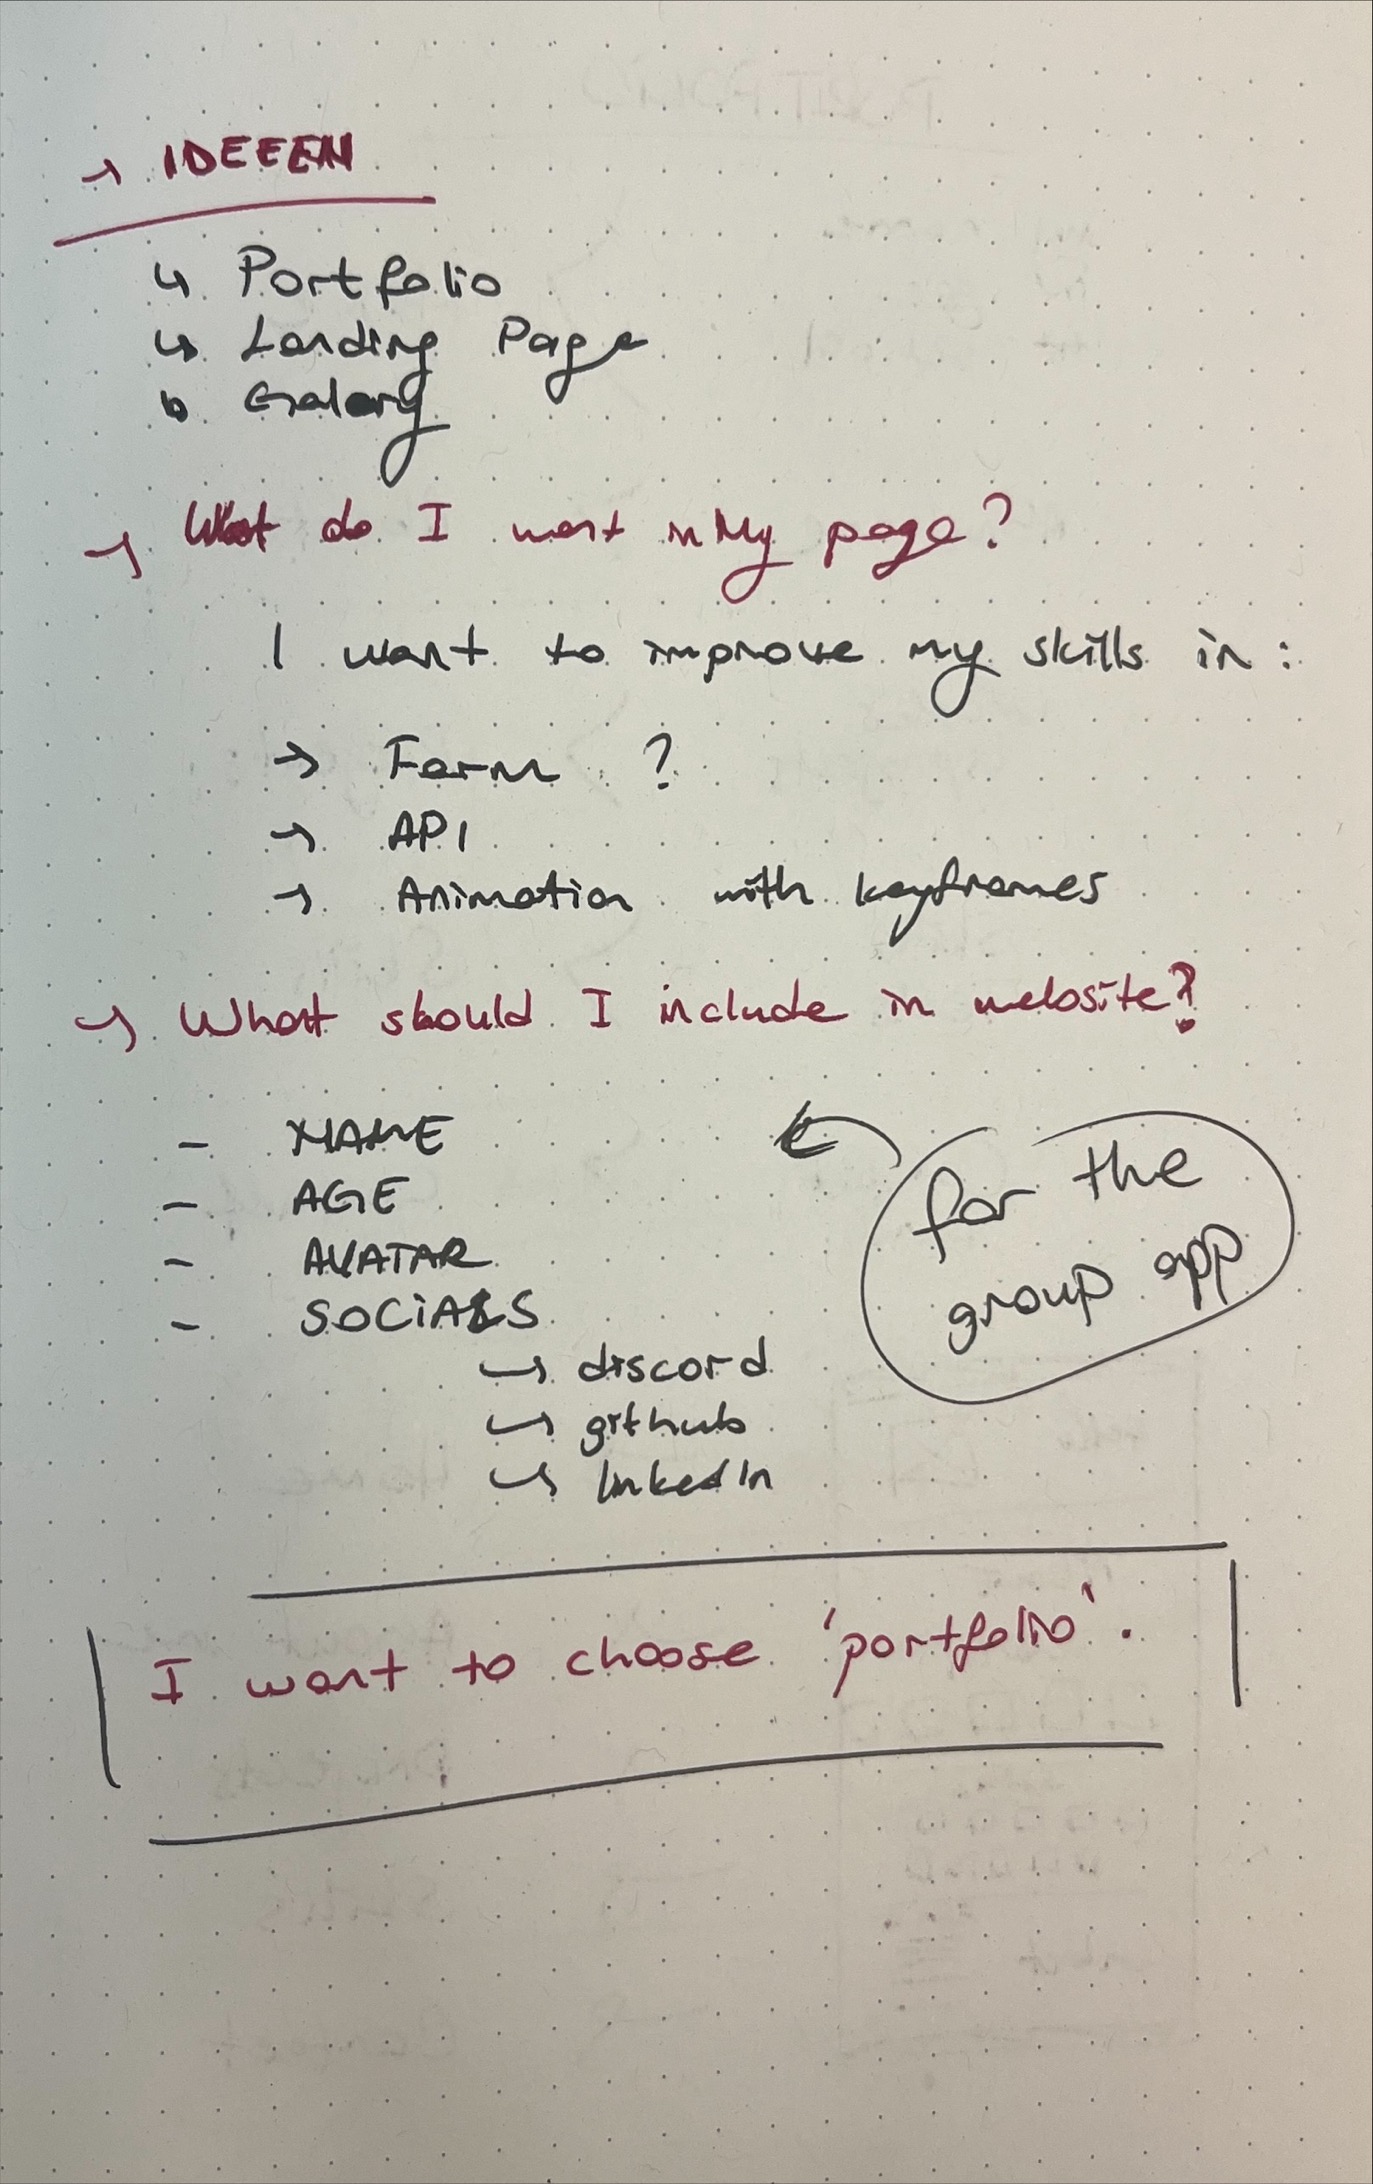 → IDEEEN
↳ Portfolio
↳ Landing Page
↳ Galary
→ What do I want in My page?
I want to improve my skills in :
→ Form ?
→ API
→ Animation with keyframes
→ What should I include in website?
- NAME
- AGE
- AVATAR
- SOCiALS
↳ discord
↳ github
↳ linkedIn
for the
group app
I want to choose 'portfolio'.